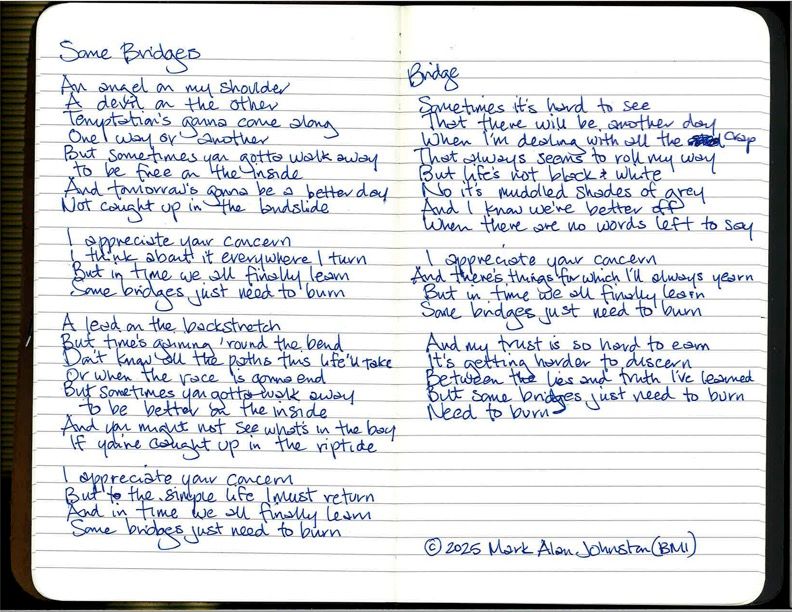 Some Bridges
An angel on my shoulder
A devil on the other
Temptation's gonna come along
One way or another
But sometimes you gotta walk away
to be free on the inside
And tomorrow's gonna be a better day
Not caught up in the landslide
I appreciate your concern
I think about it everywhere I turn
But in time we all finally learn
Some bridges just need to burn
A lead on the backstretch
But time's gaining 'round the bend
Don't know all the paths this life'll take
Or when the race is gonna end
But sometimes you gotta walk away
to be better on the inside
And you might not see what's in the bay
If you're caught up in the riptide
I appreciate your concern
But to the simple life I must return
And in time we all finally learn
Some bridges just need to burn
Bridge
Sometimes it's hard to see
That there will be another day
When I'm dealing with all the crap
That always seems to roll my way
But life's not black & white
No it's muddled shades of grey
And I know we're better off
When there are no words left to say
I appreciate your concern
And there's things for which I'll always yearn
But in time we all finally learn
Some bridges just need to burn
And my trust is so hard to earn
It's getting harder to discern
Between the lies and truth I've learned
But some bridges just need to burn
Need to burn
© 2025 Mark Alan Johnston (BMI)